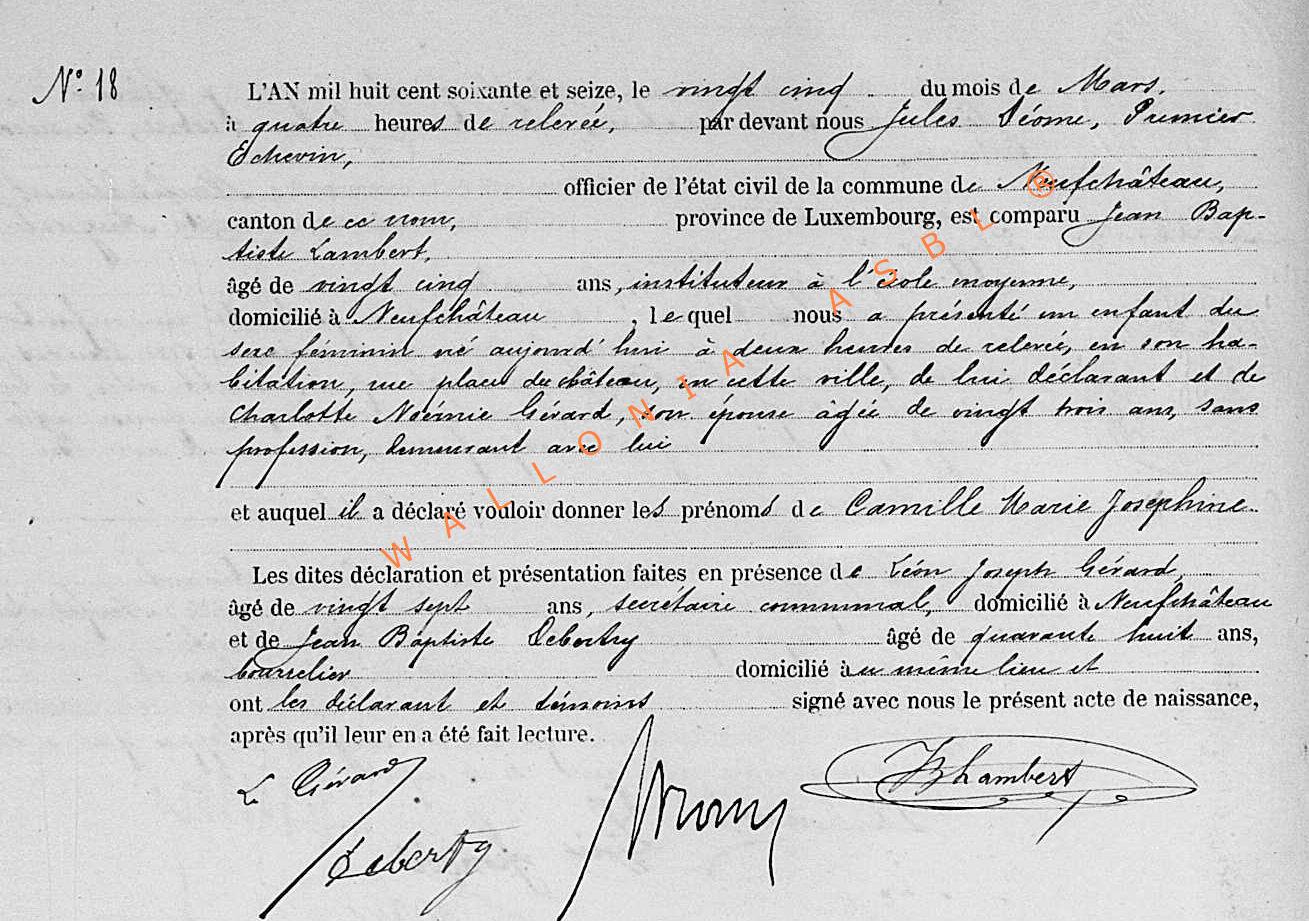 N° 18
L'AN mil huit cent soixante et seize, le vingt cinq du mois de Mars,
à quatre heures de relevée, par devant nous Jules Déome, Premier
Echevin,
officier de l'état civil de la commune de Neufchâteau,
canton de ce nom, province de Luxembourg, est comparu Jean Bap-
tiste Lambert,
âgé de vingt cinq ans, instituteur à l'école moyenne,
domicilié à Neufchâteau, lequel nous a présenté un enfant du
sexe féminin né aujourd'hui à deux heures de relevée, en son ha-
bitation, rue place du château, en cette ville, de lui déclarant et de
Charlotte Noémie Gérard, son épouse âgée de vingt trois ans, sans
profession, demeurant avec lui
et auquel il a déclaré vouloir donner les prénoms de Camille Marie Joséphine
Les dites déclaration et présentation faites en présence de Léon Joseph Gérard,
âgé de vingt sept ans, secrétaire communal, domicilié à Neufchâteau
et de Jean Baptiste Deberty âgé de quarante huit ans,
bourrelier domicilié au même lieu et
ont les déclarant et témoins signé avec nous le présent acte de naissance,
après qu'il leur en a été fait lecture.
L Gérard
JBLambert
Deberty
WALLONIA ASBL ®